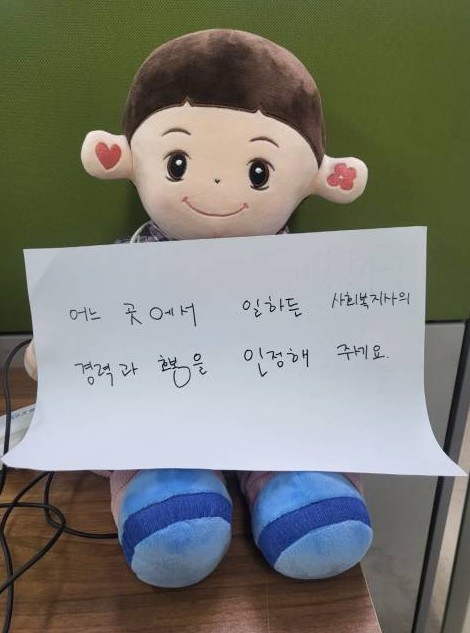 어느 곳에서 일하든 사회복지사의
경력과 호봉을 인정해 주세요.